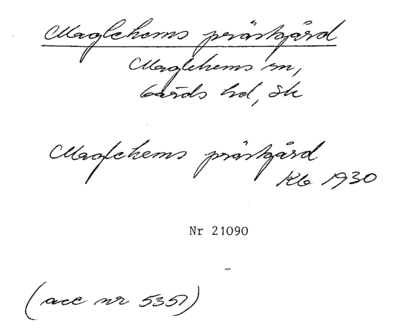 Maglehems prästgård
Maglehems sn,
Gärds hd, Sk
Maglehems prästgård
Kb 1930
Nr 21090
(acc nr 5351)